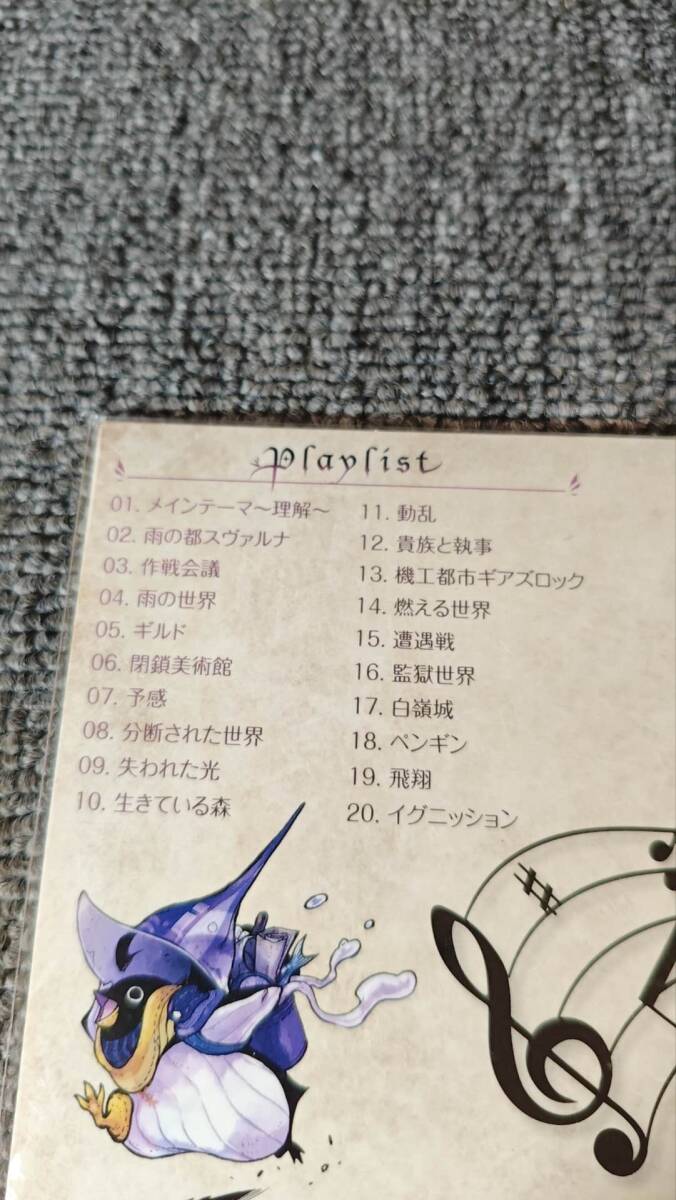 Playlist
01. メインテーマ～理解～
02. 雨の都スヴァルナ
03. 作戦会議
04. 雨の世界
05. ギルド
06. 閉鎖美術館
07. 予感
08. 分断された世界
09. 失われた光
10. 生きている森
11. 動乱
12. 貴族と執事
13. 機工都市ギアズロック
14. 燃える世界
15. 遭遇戦
16. 監獄世界
17. 白嶺城
18. ペンギン
19. 飛翔
20. イグニッション